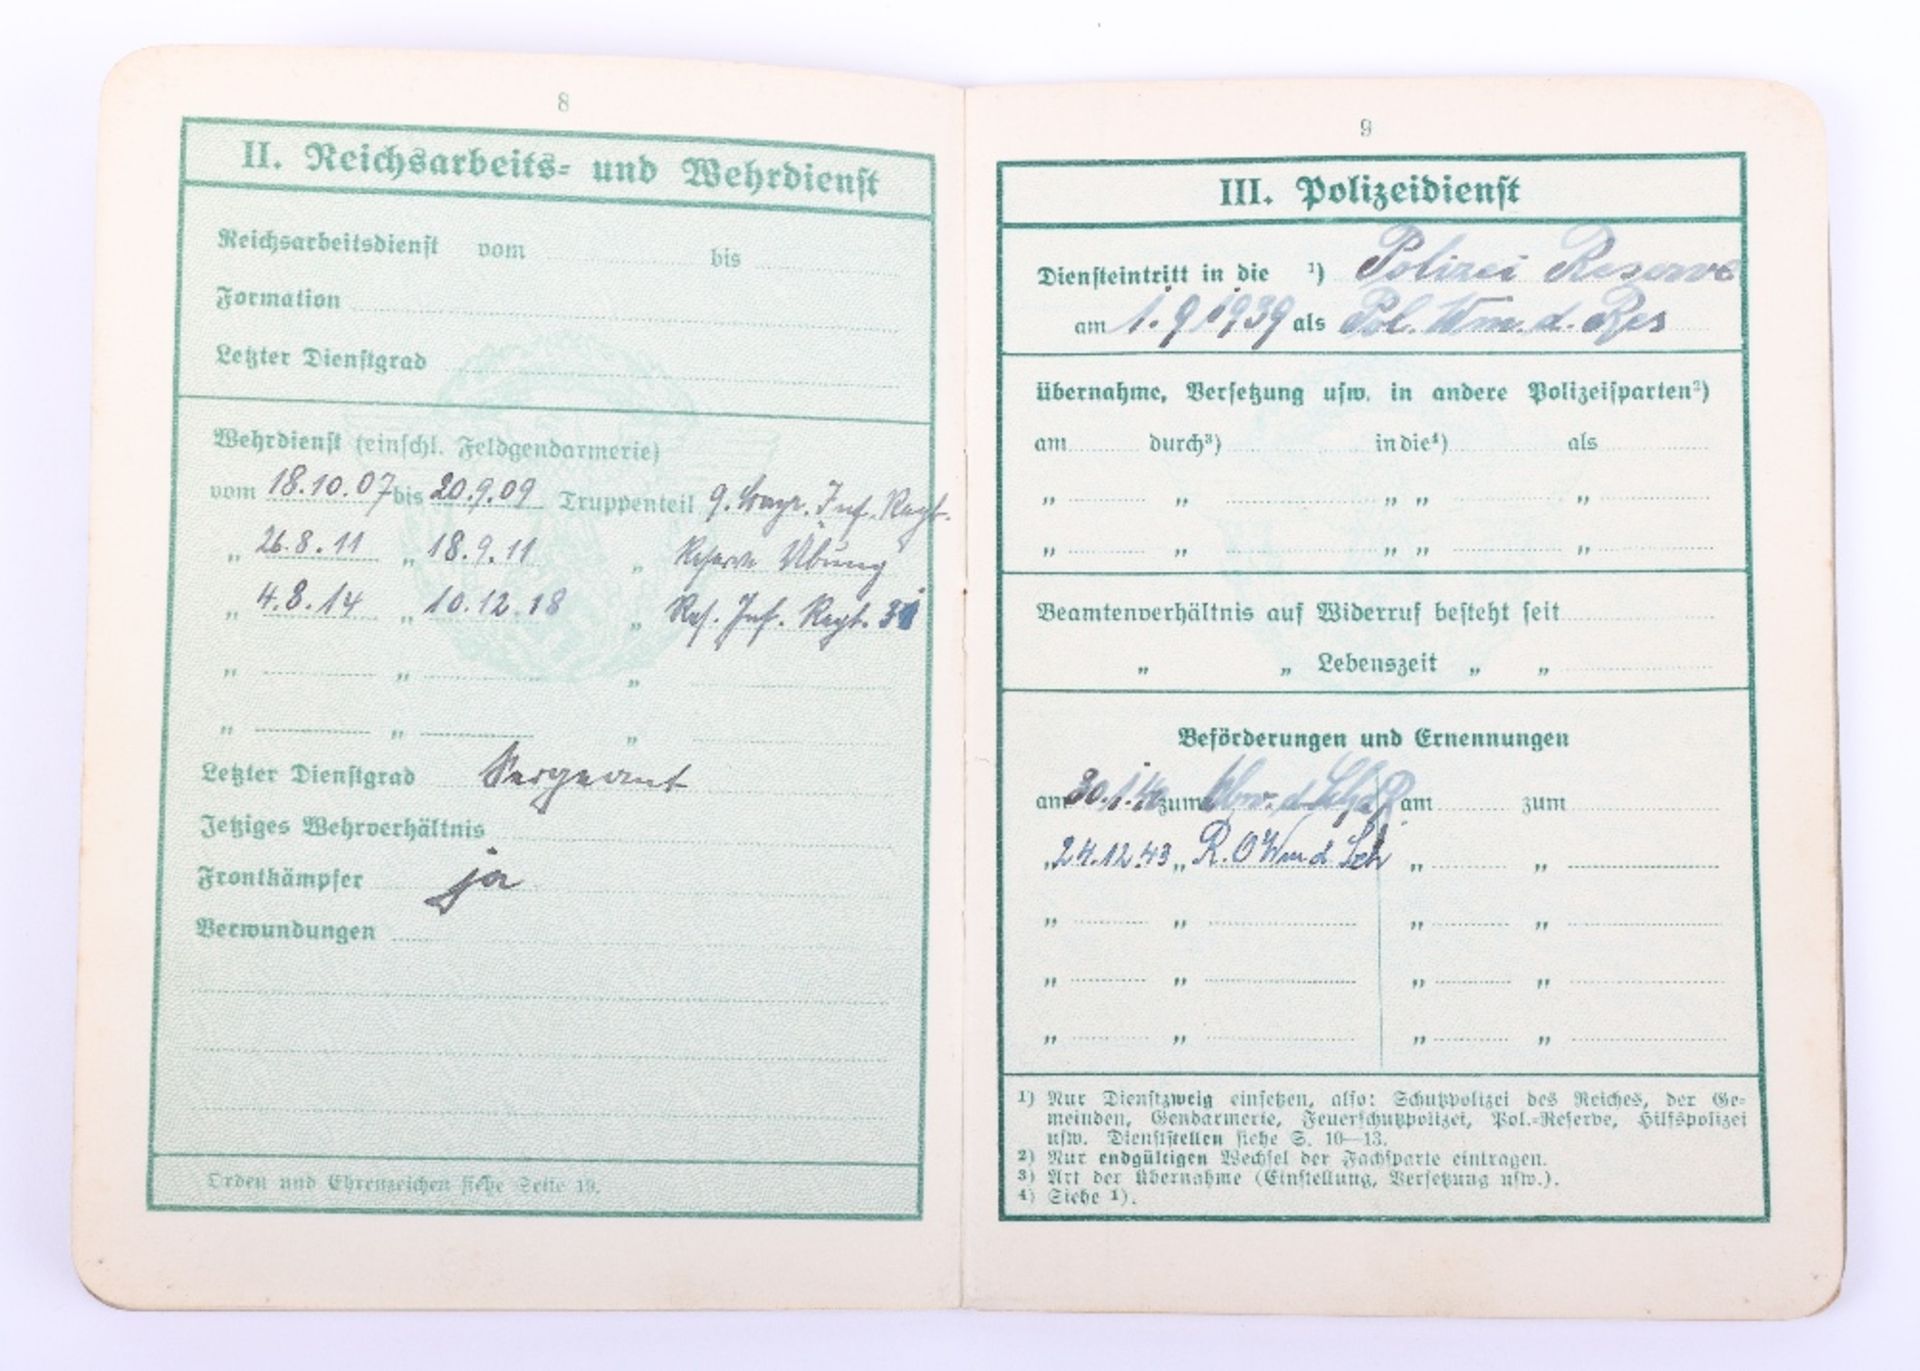 8
II. Reichsarbeits- und Wehrdienst
Reichsarbeitsdienst vom bis
Formation
Letzter Dienstgrad
Wehrdienst (einschl. Feldgendarmerie)
vom 18.10.07 bis 20.9.09 Truppenteil 9. Bayr. Inf. Regt.
„ 26.8.11 „ 18.9.11 „ Reserve Übung
„ 4.8.14 „ 10.12.18 „ Res. Inf. Regt.
„ „ „
„ „ „
Letzter Dienstgrad Sergeant
Jetziges Wehrverhältnis
Frontkämpfer ja
Verwundungen
Orden und Ehrenzeichen siehe Seite 19.
9
III. Polizeidienst
Diensteintritt in die ¹) Polizei Reserve
am 1.9.1939 als Pol. Wm. d. Res
Übernahme, Versetzung usw. in andere Polizeisparten²)
am durch³) in die⁴) als
„ „ „ „ „
„ „ „ „ „
Beamtenverhältnis auf Widerruf besteht seit
„ „ Lebenszeit „ „
Beförderungen und Ernennungen
am 30.1.40 zum am zum
„ 24.12.43 „ R. O Wm d Sch „ „
„ „ „ „
„ „ „ „
„ „ „ „
¹) Nur Dienstzweig einsetzen, also: Schutzpolizei des Reiches, der Ge-
meinden, Gendarmerie, Feuerschutzpolizei, Pol.-Reserve, Hilfspolizei
usw. Dienststellen siehe S. 10—13.
²) Nur endgültigen Wechsel der Fachsparte eintragen.
³) Art der Übernahme (Einstellung, Versetzung usw.).
⁴) Siehe ¹).